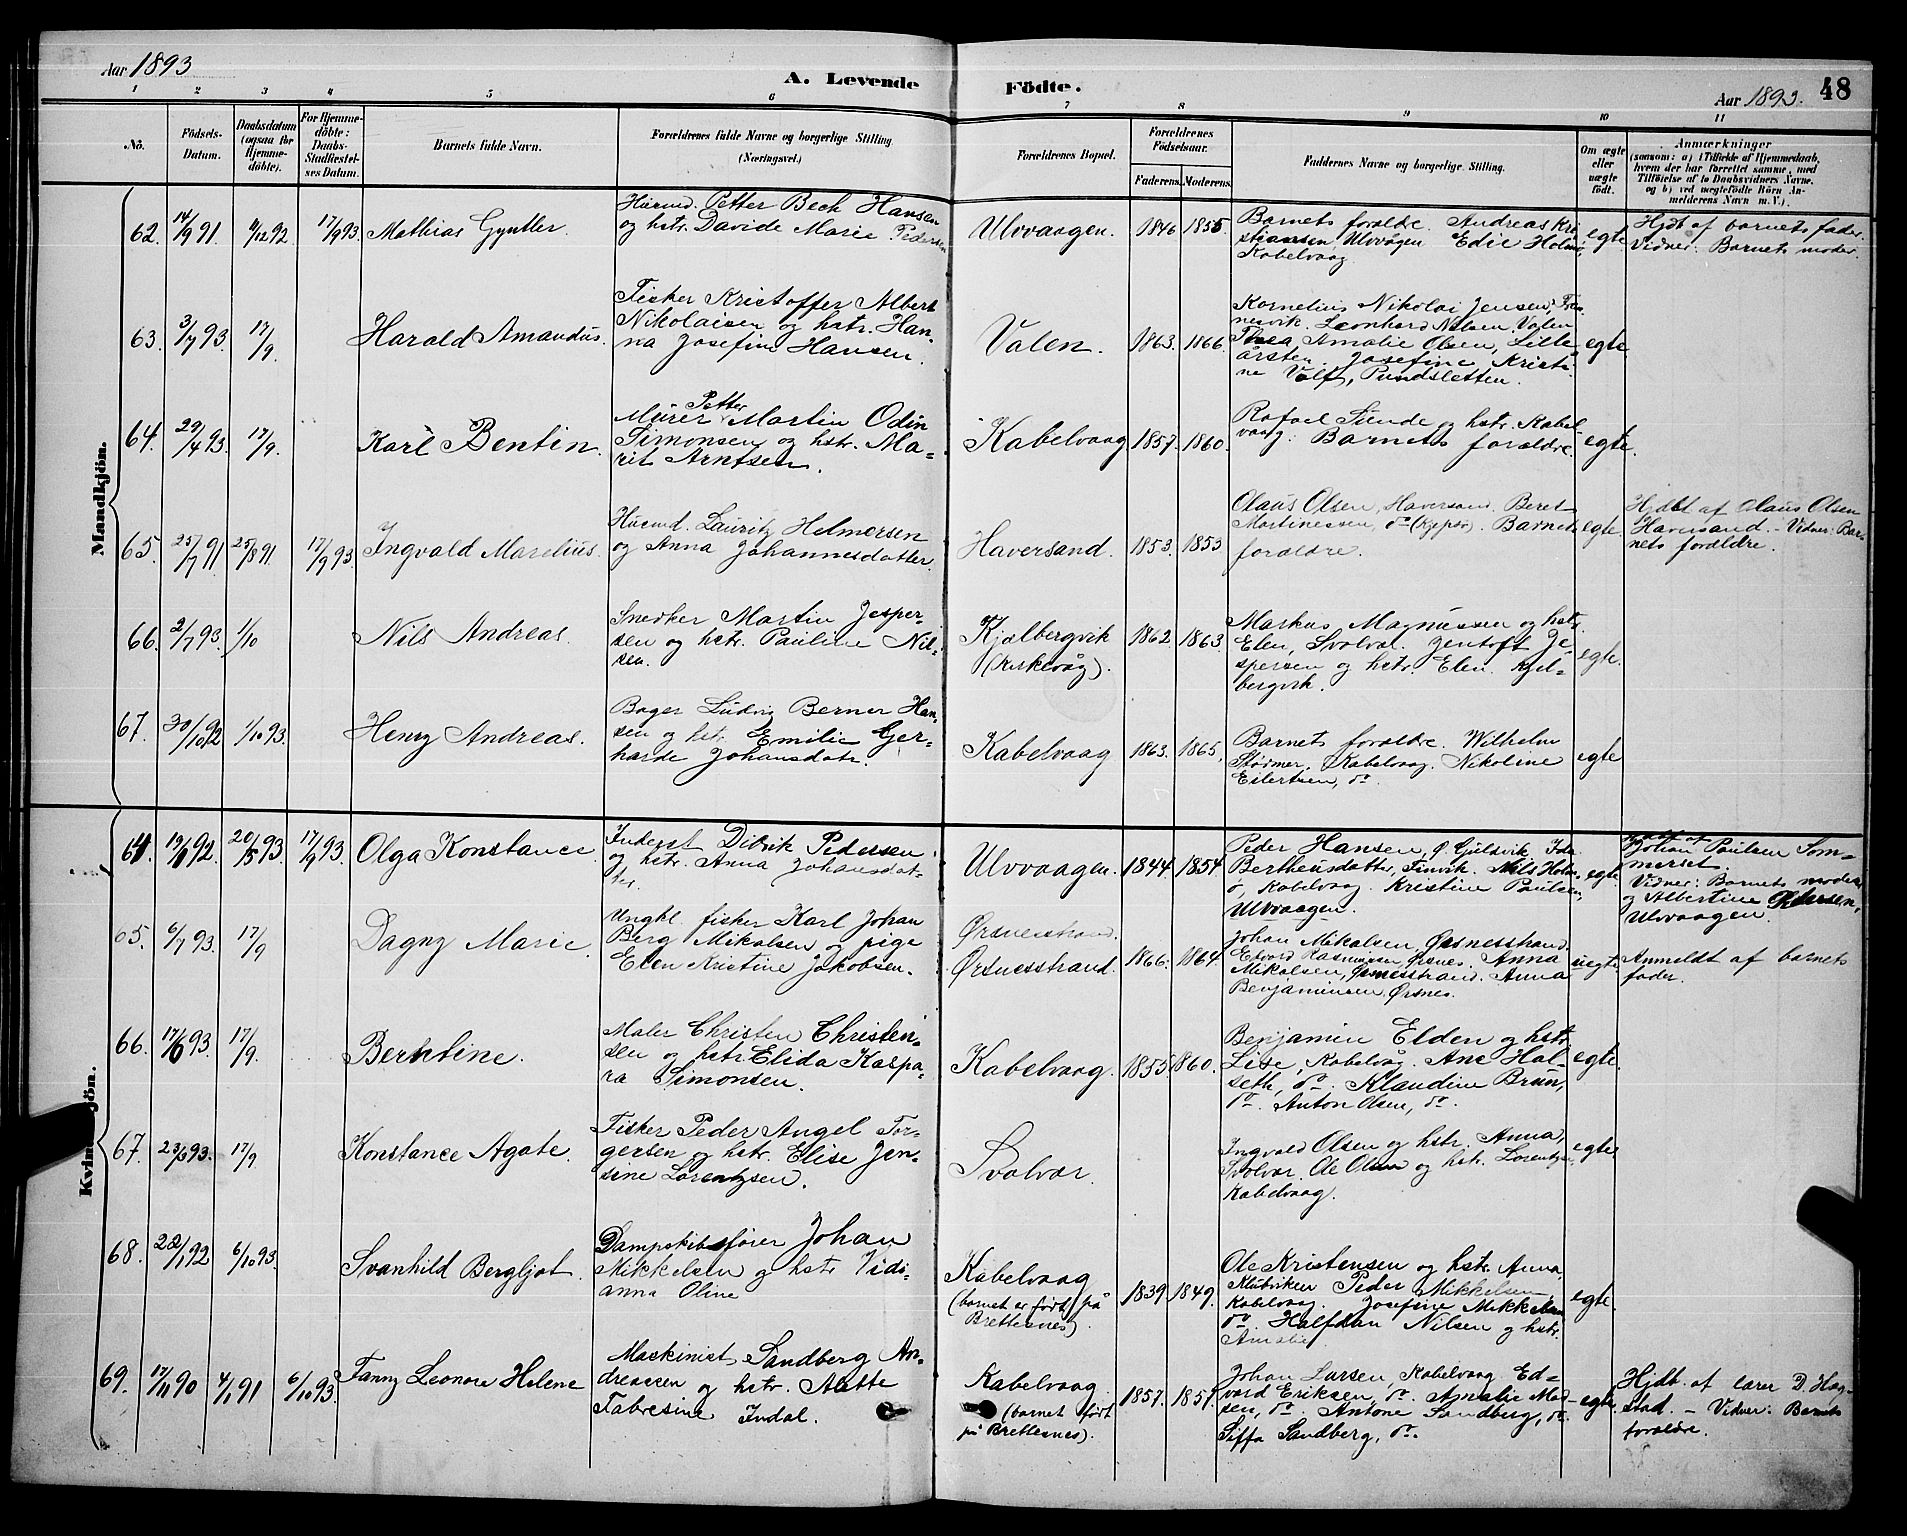 Aar 1893
A. Levende
Födte.
Aar 1893. 48
1 2 3 4 5 6 7 8 9 10 11
No.
Födsels-
Datum.
Daabsdatum
(ogsaa for
Hjemme-
döbte).
For Hjemme-
döbte:
Daabs-
Stadfæstel-
ses Datum.
Barnets fulde Navn.
Forældrenes fulde Navne og borgerlige Stilling
(Næringsvei.)
Forældrenes Bopæl.
Forældrenes
Födselsaar.
Faderens. Moderens.
Faddernes Navne og borgerlige Stilling.
Om ægte
eller
uægte
födt.
Anmærkninger
(saasom: a) i Tilfælde af Hjemmedaab,
hvem der har forrettet samme, med
Tilföielse af to Daabsvidners Navne,
og b) ved uægtefödte Börn An-
melderens Navn m. V.).
Mandkjön.
62. 14/9 91 11/12 92 17/9 93 Mathias Gyntler
Husmd. Petter Bech Hansen
og hstr. Davide Marie Pedersen
Ulvvaagen. 1846 1855
Barnets forældre. Andreas Kri
stiansen Ulvvågen Edie Holmø,
Kabelvaag
egte
Hjdt af barnets fader.
Vidner: Barnets moder.
63. 3/7 93. 17/9. Harald Amandus.
Fisker Kristoffer Albert
Nikolaisen og hstr. Han-
na Josefine Hansen.
Valen. 1863. 1866.
Kornelius Nikolai Jensen,
Leonhard Nilsen Valen
Thea Amalie Olsen, Lille
Josefine Kristi-
ne Volf, Pundsletten.
egte
64. 29/4 93. 17/9. Karl Bentin.
Petter
Murer Martin Odin
Simonsen og hstr. Ma-
rit Arntsen.
Kabelvaag 1857. 1860.
Rafael Sunde og hstr. Kabel
vaag. Barnets forældre.
egte.
65. 25/7 91 25/8 91 17/9 93 Ingvald Marelius.
Husmd. Lauritz Helmersen
og Anna Johannesdatter.
Haversand. 1853. 1853
Olaus Olsen, Haversand. Beret
Martinessen, do (Kjepsø). Barnets
forældre.
egte.
Hjdbt af Olaus Olsen
Haversand. - Vidner: Bar-
nets forældre.
66. 2/7 93. 1/10 Nils Andreas.
Snedker Martin Jesper-
sen og hstr. Pauline Nil-
sen.
Kjælbergvik
(Kirkevåg).
1862 1863.
Markus Magnussen og hstr.
Elen, Svolvæl. Jentoft Je
spersen og hstr. Elen. Kjel-
bergvik.
egte.
67. 30/10 92 1/10 93. Henry Andreas.
Bager Ludvig Berner Han-
sen og hstr. Emilie Ger-
harde Johansdatr.
Kabelvaag 1863. 1865.
Barnets forældre. Wilhelm
Stödmer, Kabelvaag. Nikoline
Eilertsen, do.
egte
Kvindekjön.
64. 92. 20/5 93. 17/9 93. Olga Konstance
Inderst Didrik Pedersen
og hstr. Anna Johansdat-
ter.
Ulvvaagen. 1844. 1854
Peder Hansen, Ø. Guldvik Ida
Bertheusdatter, Finvik. Nils Holm
ø, Kabelvaag. Kristine Paulsen,
Ulvvaagen.
egte.
Hjdt af
Johan Paulsen Som-
merset
Vidner: Barnets moder
og Albertine Pedersen,
Ulvvaagen.
65. 6/7 93. 17/9 Dagny Marie.
Ungkl. fisker Karl Johan
Berg Mikalsen og pige
Elen Kristine Jakobsen.
Ørsnesstrand.
Ørsnesstrand. 1866. 1864.
Johan Mikalsen, Ørsnesstrand.
Edvard Rasmussen Ørsnes. Anna
Mikalsen, Ørsnesstrand. Anna
Benjaminsen Ørsnes.
uegte.
Anmeldt af barnets
fader.
66. 17/6 93. 17/9. Berntine.
Maler Christen Christen-
sen og hstr. Elida Kaspa-
ra Simonsen.
Kabelvaag. 1855. 1860.
Benjamin Elden og hstr.
Lise, Kabelvåg. Ane Hal-
seth, do. Klaudine Brun,
do. Anton Olsen, do.
egte.
67. 23/6 93. 17/9 Konstance Agate.
Fisker Peder Angel Tor-
gersen og hstr. Elise Jen-
sine Lorentzsen.
Svolvær.
Ingvald Olsen og hstr. Anna,
Svolvær. Ole Olsen og hstr. Lorentze,
Kabelvaag.
egte.
68. 22/1 92 6/10 93. Svanhild Bergljot.
Dampskibsfører Johan
Mikkelsen og hstr. Vidi-
anna Oline
Kabelvaag
(barnet er født på
Brettesnes).
1839. 1849.
Ole Kristensen og hstr. Anna,
Klubviken Peder Mikkelsen,
Kabelvaag. Josefine Mikkelsen
do. Halfdan Nilsen og hstr.
Amalie
egte.
69. 17/11 90 4/1 91 6/10 93. Fanny Leonore Helene
Maskinist Sandberg An-
dreassen og hstr. Alette
Fabresine Indal.
Kabelvaag.
(barnet født
på Brettesnes).
1857. 1857.
Johan Larsen, Kabelvaag. Ed-
vard Eriksen, do. Amalie Mad-
sen, do. Antone Sandberg, do.
Siffa Sandberg, do.
egte
Hjdt. af lærer D. Hag-
stad. - Vidner: Barnets
forældre.